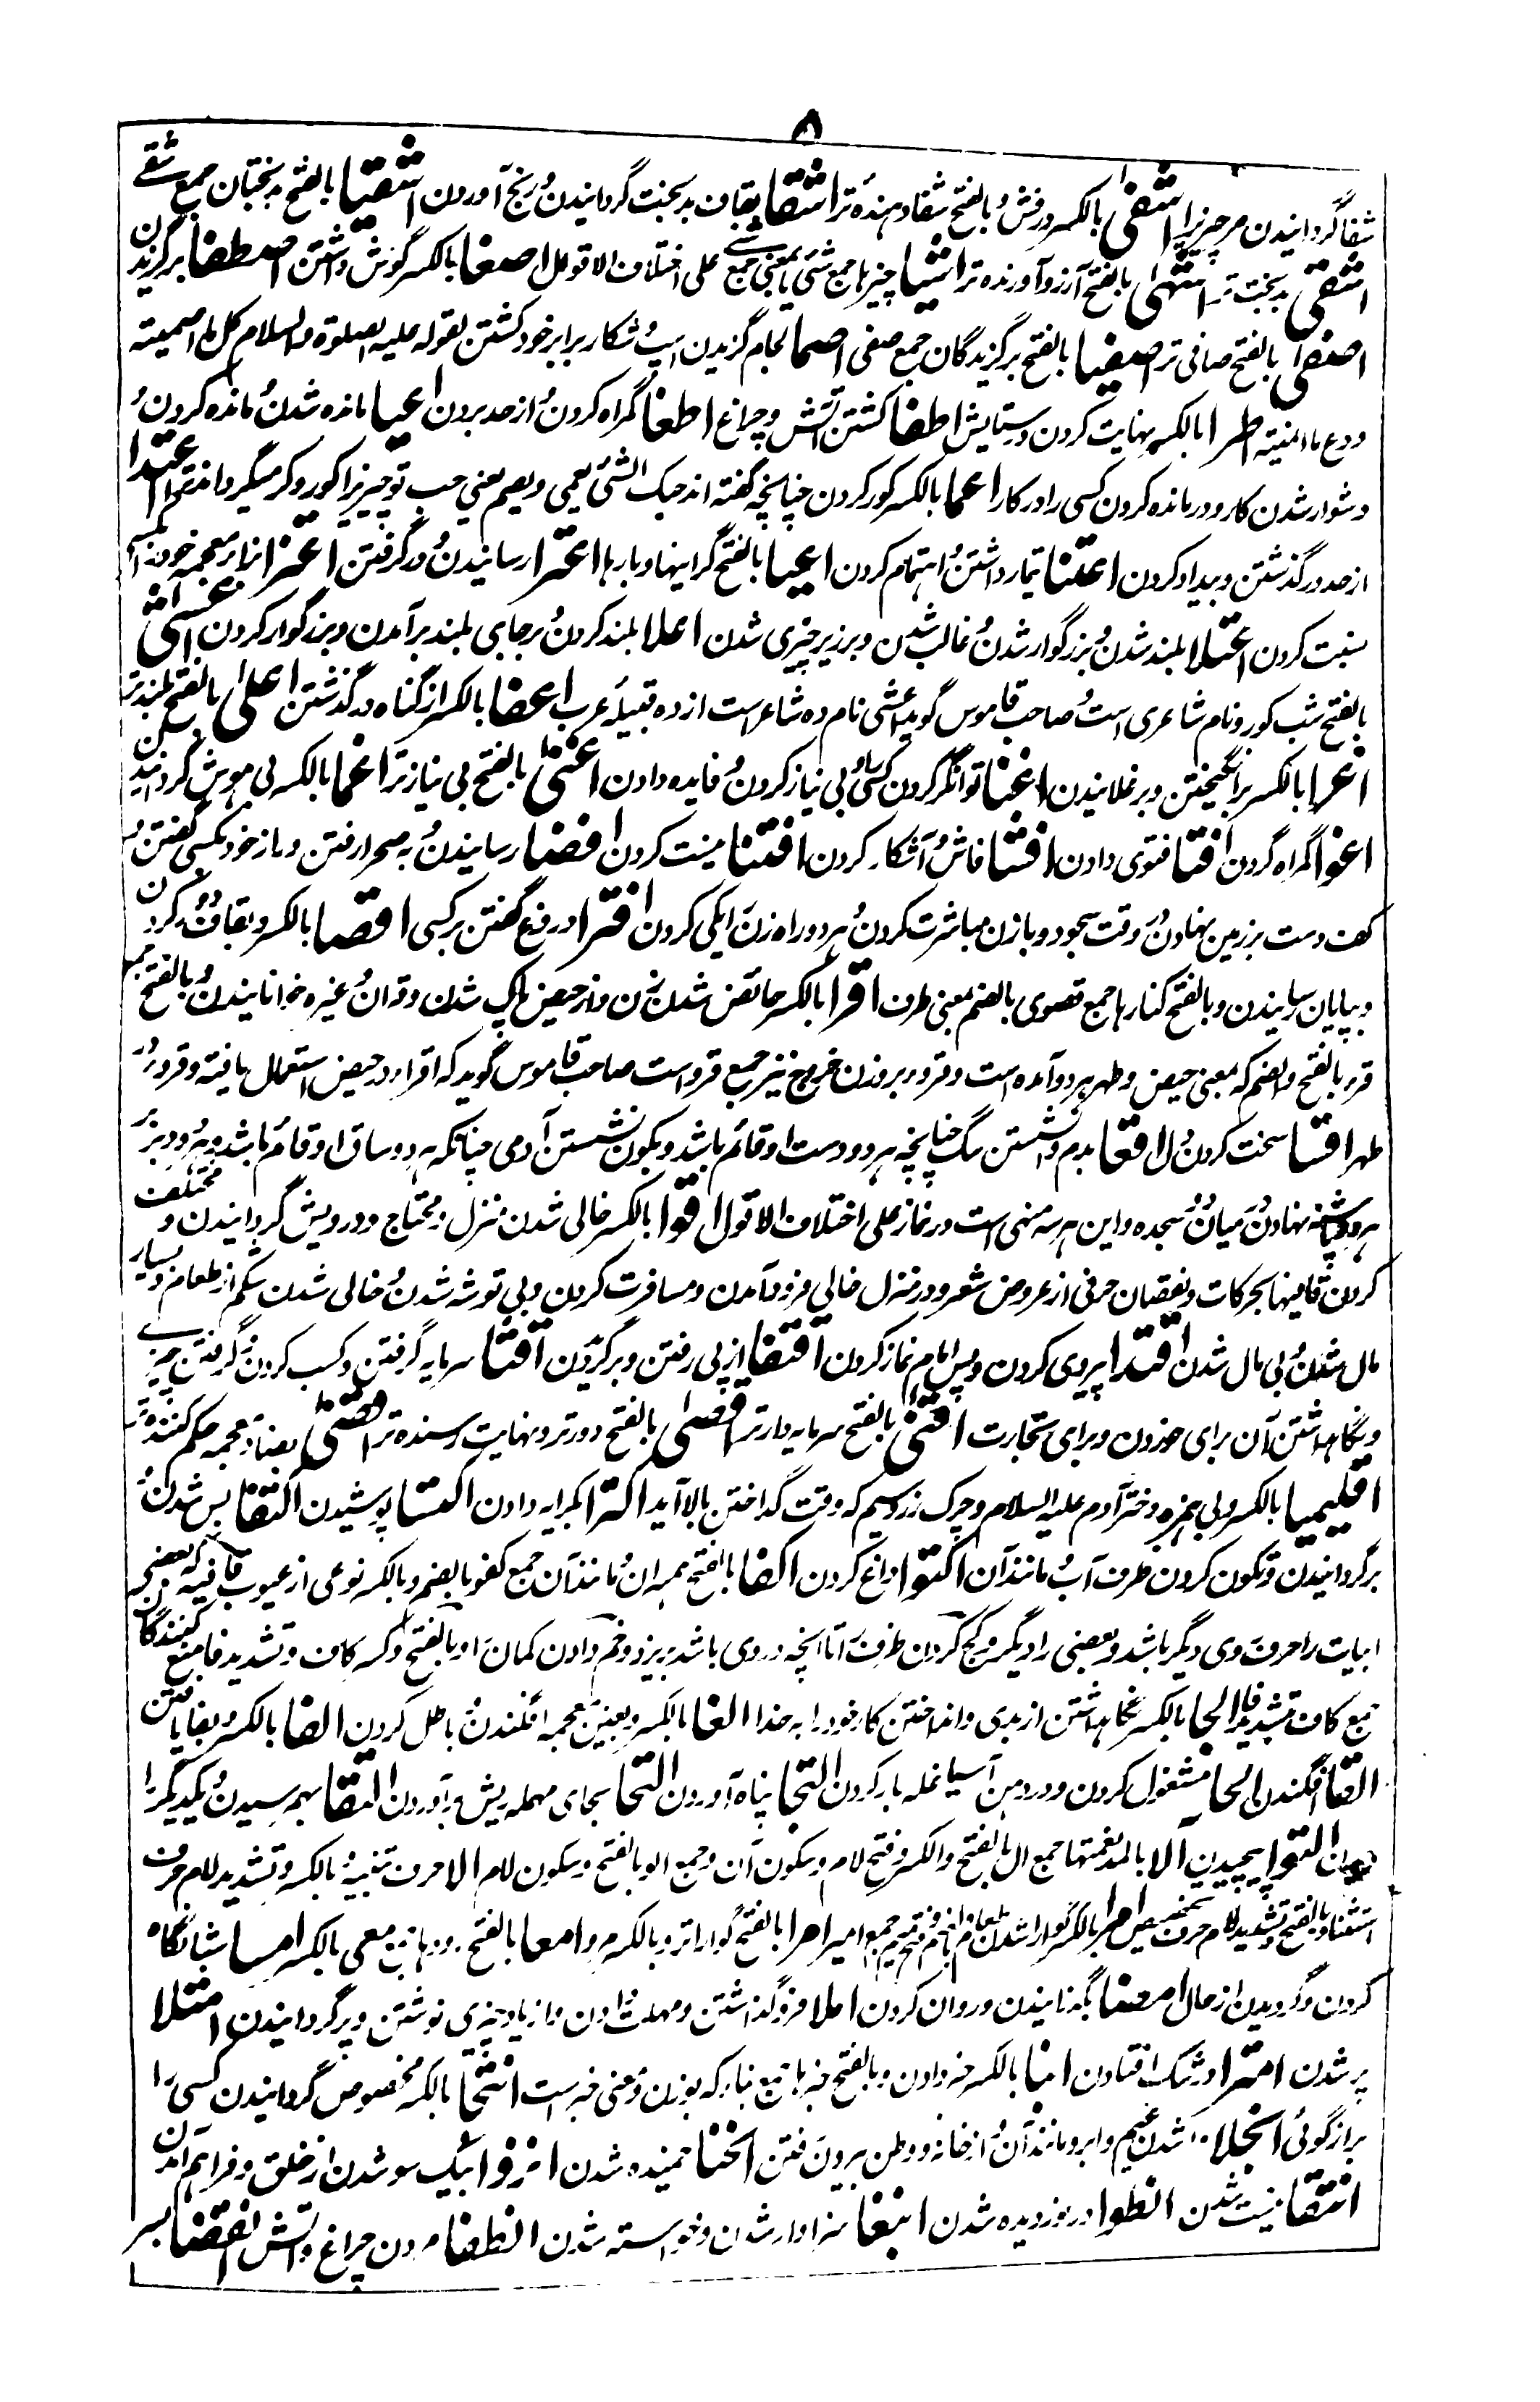 ۵
شفا گردانیدن مر چیزیرا اشفی بالکسر درفش و بالفتح شفا دهنده تر اشقا بقاف بدبخت گردانیدن و رنج آوردن اشقیا بالفتح بدبختان جمع شقے
اشقی بدبخت تر اشتهی بالفتح آرزو آورنده تر اشیا چیزها جمع شئ یا بمعنی جمع علی اختلاف الاقوال اصغا بالکسر گوش داشتن اصطفا برگزیدن
اصفی بالفتح صافی تر اصفیا بالفتح برگزیدگان جمع صفی اصما لجام گزیدن اسپ و شکار برابر خود کشتن لقوله علیه الصلوة والسلام کل ما اصمیته
ودع ما انمیته اطرا بالکسر نهایت کردن در ستایش اطفا کشتن آتش و چراغ اطغا گمراه کردن و از حد بردن اعیا مانده شدن و مانده کردن و
دشوار شدن کار و درمانده کردن کسی را در کار اعما بالکسر کور کردن چنانچه گفته اند حبک الشئ یعمی و یصم یعنی حب تو چیزیرا کور و کر میگرداند ترا اعتدا
از حد در گذشتن و بیداد کردن اعتنا تیمار داشتن و اهتمام کردن اعبا بالفتح گرانیها و بارها اعترا رسانیدن و در گرفتن اعتزا بزا معجمه خود را بکسی
نسبت کردن اعتلا بلند شدن و بزرگوار شدن و غالب شدن و بر زبر چیزی شدن اعلا بلند کردن و بر جای بلند برآمدن و بزرگوار کردن اعشی
بالفتح شب کور و نام شاعری است و صاحب قاموس گوید اعشی نام ده شاعر است از ده قبیله عرب اعضا بالکسر از گناه در گذشتن اعلی بالفتح بلندتر
اغرا بالکسر برانگیختن و برغلانیدن اغنا توانگر کردن کسی را و بی نیاز کردن و فایده دادن اغنی بالفتح بی نیاز تر اغما بالکسر بی هوش گردانیدن
اغوا گمراه کردن افتا فتوی دادن افشا فاش و آشکار کردن افتنا نیست کردن افضا رسانیدن و به صحرا رفتن و راز خود بکسی گفتن و
کف دست بر زمین نهادن در وقت سجود و با زن مباشرت کردن و هر دو راه زن را یکی کردن افترا دروغ گفتن بر کسی اقصا بالکسر و بقاف دور کردن
و بپایان رسانیدن و بالفتح کنارها جمع قصوی بالضم بمعنی طرف اقرا بالکسر حائض شدن زن و از حیض پاک شدن و قرآن و غیره خوانانیدن و بالفتح جمع
قرء بالفتح و الضم که بمعنی حیض و طهر هر دو آمده است و قروء بروزن خروج نیز جمع قرء است صاحب قاموس گوید که اقراء در حیض استعمال یافته و قروء در
طهر اقسا سخت کردن دل اقعا بدم نشستن سگ چنانچه هر دو دست او قائم باشد و بکون نشستن آدمی چنانکه هر دو ساق او قائم باشد و هر دو سرین بر
هر دو پاشنه نهادن میان دو سجده و این هر سه منهی است در نماز علی اختلاف الاقوال اقوا بالکسر خالی شدن منزل و محتاج و درویش گردانیدن و مختلف
کردن قافیها بحرکات و نقصان حرفی از عروض شعر و در منزل خالی فرود آمدن و مسافرت کردن و بی توشه شدن و خالی شدن شکم از طعام و بسیار
مال شدن و بی مال شدن اقتدا پیروی کردن و پس امام نماز کردن اقتفا از پی رفتن و برگزیدن اقتنا سرمایه گرفتن و کسب کردن و گرفتن چیزے
و نگاه داشتن آن برای خوردن و برای تجارت اقنی بالفتح سرمایه دارتر اقصی بالفتح دورتر و نهایت رسنده تر اقضی بضاد معجمه حکم کننده تر
اقلیمیا بالکسر و بی همزه دختر آدم علیه السلام و چرک زر و سیم که وقت گداختن بالا آید اکترا بکرایه دادن اکتسا پوشیدن اکتفا بس شدن و
برگردانیدن و نگون کردن ظرف آب و مانند آن اکتوا داغ کردن اکفا بالفتح همسران و مانندان جمع کفو بالضم و بالکسر نوعی از عیوب قافیه که بعضی
ابیات را حرف روی دیگر باشد و بعضی را دیگر و کج کردن ظرف تا آنچه در وی باشد بریزد و خم دادن کمان او بالفتح و کسر کاف و تشدید فا منع کنندگان
جمع کاف بتشدید فا الجا بالکسر نگاه داشتن از بدی و انداختن کار خود را به خدا الغا بالکسر و بغین معجمه افگندن و باطل کردن الفا بالکسر و بفا یافتن
القا افگندن الها مشغول کردن و در دهن آسیا غله بار کردن التجا پناه آوردن التحا بحای مهمله ریش برآوردن التقا بهم رسیدن و یکدیگر را
دیدن التوا پیچیدن آلا بالمد نعمتها جمع ال بالفتح و الکسر و فتح لام و سکون آن و جمع الو بالفتح و سکون لام الا حرف تنبیه و بالکسر و تشدید لام حرف
استثنا و بالفتح و تشدید لام حرف تخضیص امرا بالکسر گوارا شدن طعام و بالضم و فتح میم جمع امیر امرا بالفتح گواراتر و بالکسر امعا بالفتح رودها جمع معی بالکسر امسا شبانگاه
کردن و گردیدن از حال امضا بگذرانیدن و روان کردن املا فرو گذاشتن و مهلت دادن و از یاد چیزی نوشتن و پر گردانیدن امتلا
پر شدن امترا در شک افتادن انبا بالکسر خبر دادن و بالفتح خبرها جمع نباء که بوزن و معنی خبر است انتجا بالکسر مخصوص گردانیدن کسی را
براز گوئی انجلا وا شدن غیم و ابر و مانند آن و از خانه و وطن بیرون رفتن انحنا خمیده شدن انزوا بیک سو شدن از خلق و فراهم آمدن
انتقا نیست شدن انطوا در نوردیده شدن انبغا سزاوار شدن و خواسته شدن انطفا مردن چراغ و آتش انقضا بسر